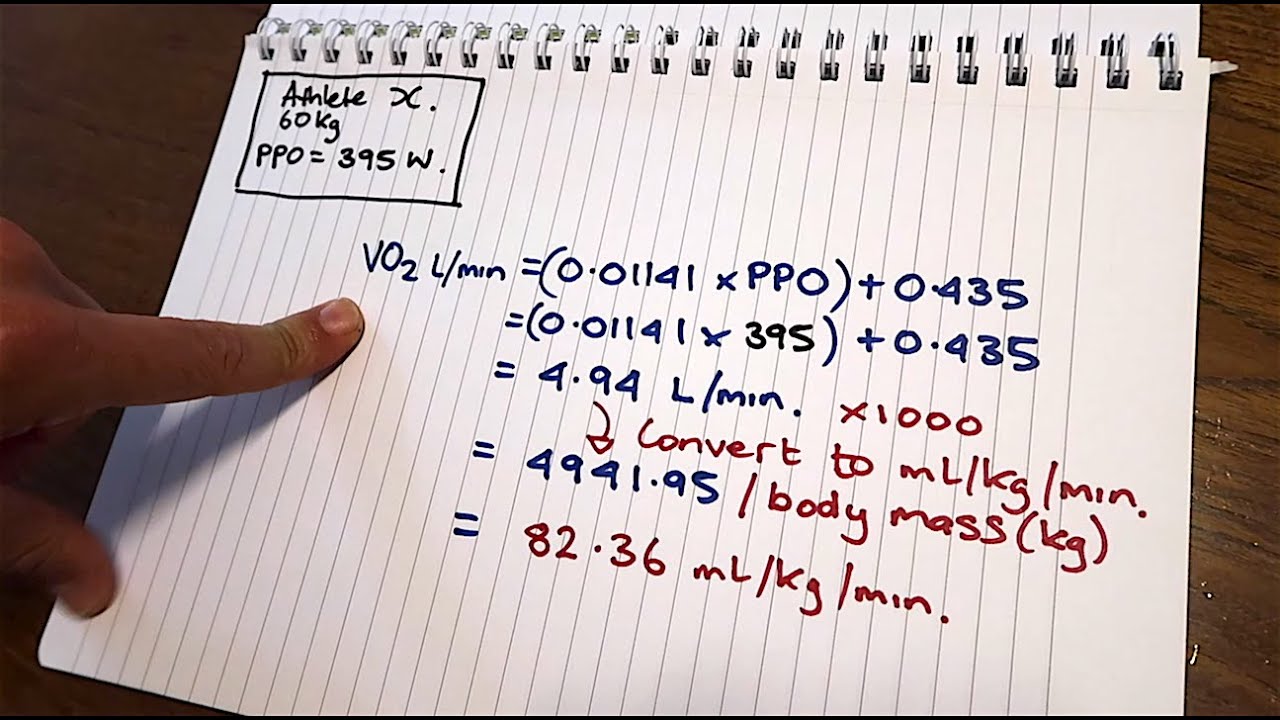 Athlete X.
60kg
PPO = 395 W.
VO2 L/min = (0.01141 x PPO) + 0.435
= (0.01141 x 395) + 0.435
= 4.94 L/min. x1000
Convert to mL/kg/min.
= 4941.95 / body mass (kg)
= 82.36 mL/kg/min.